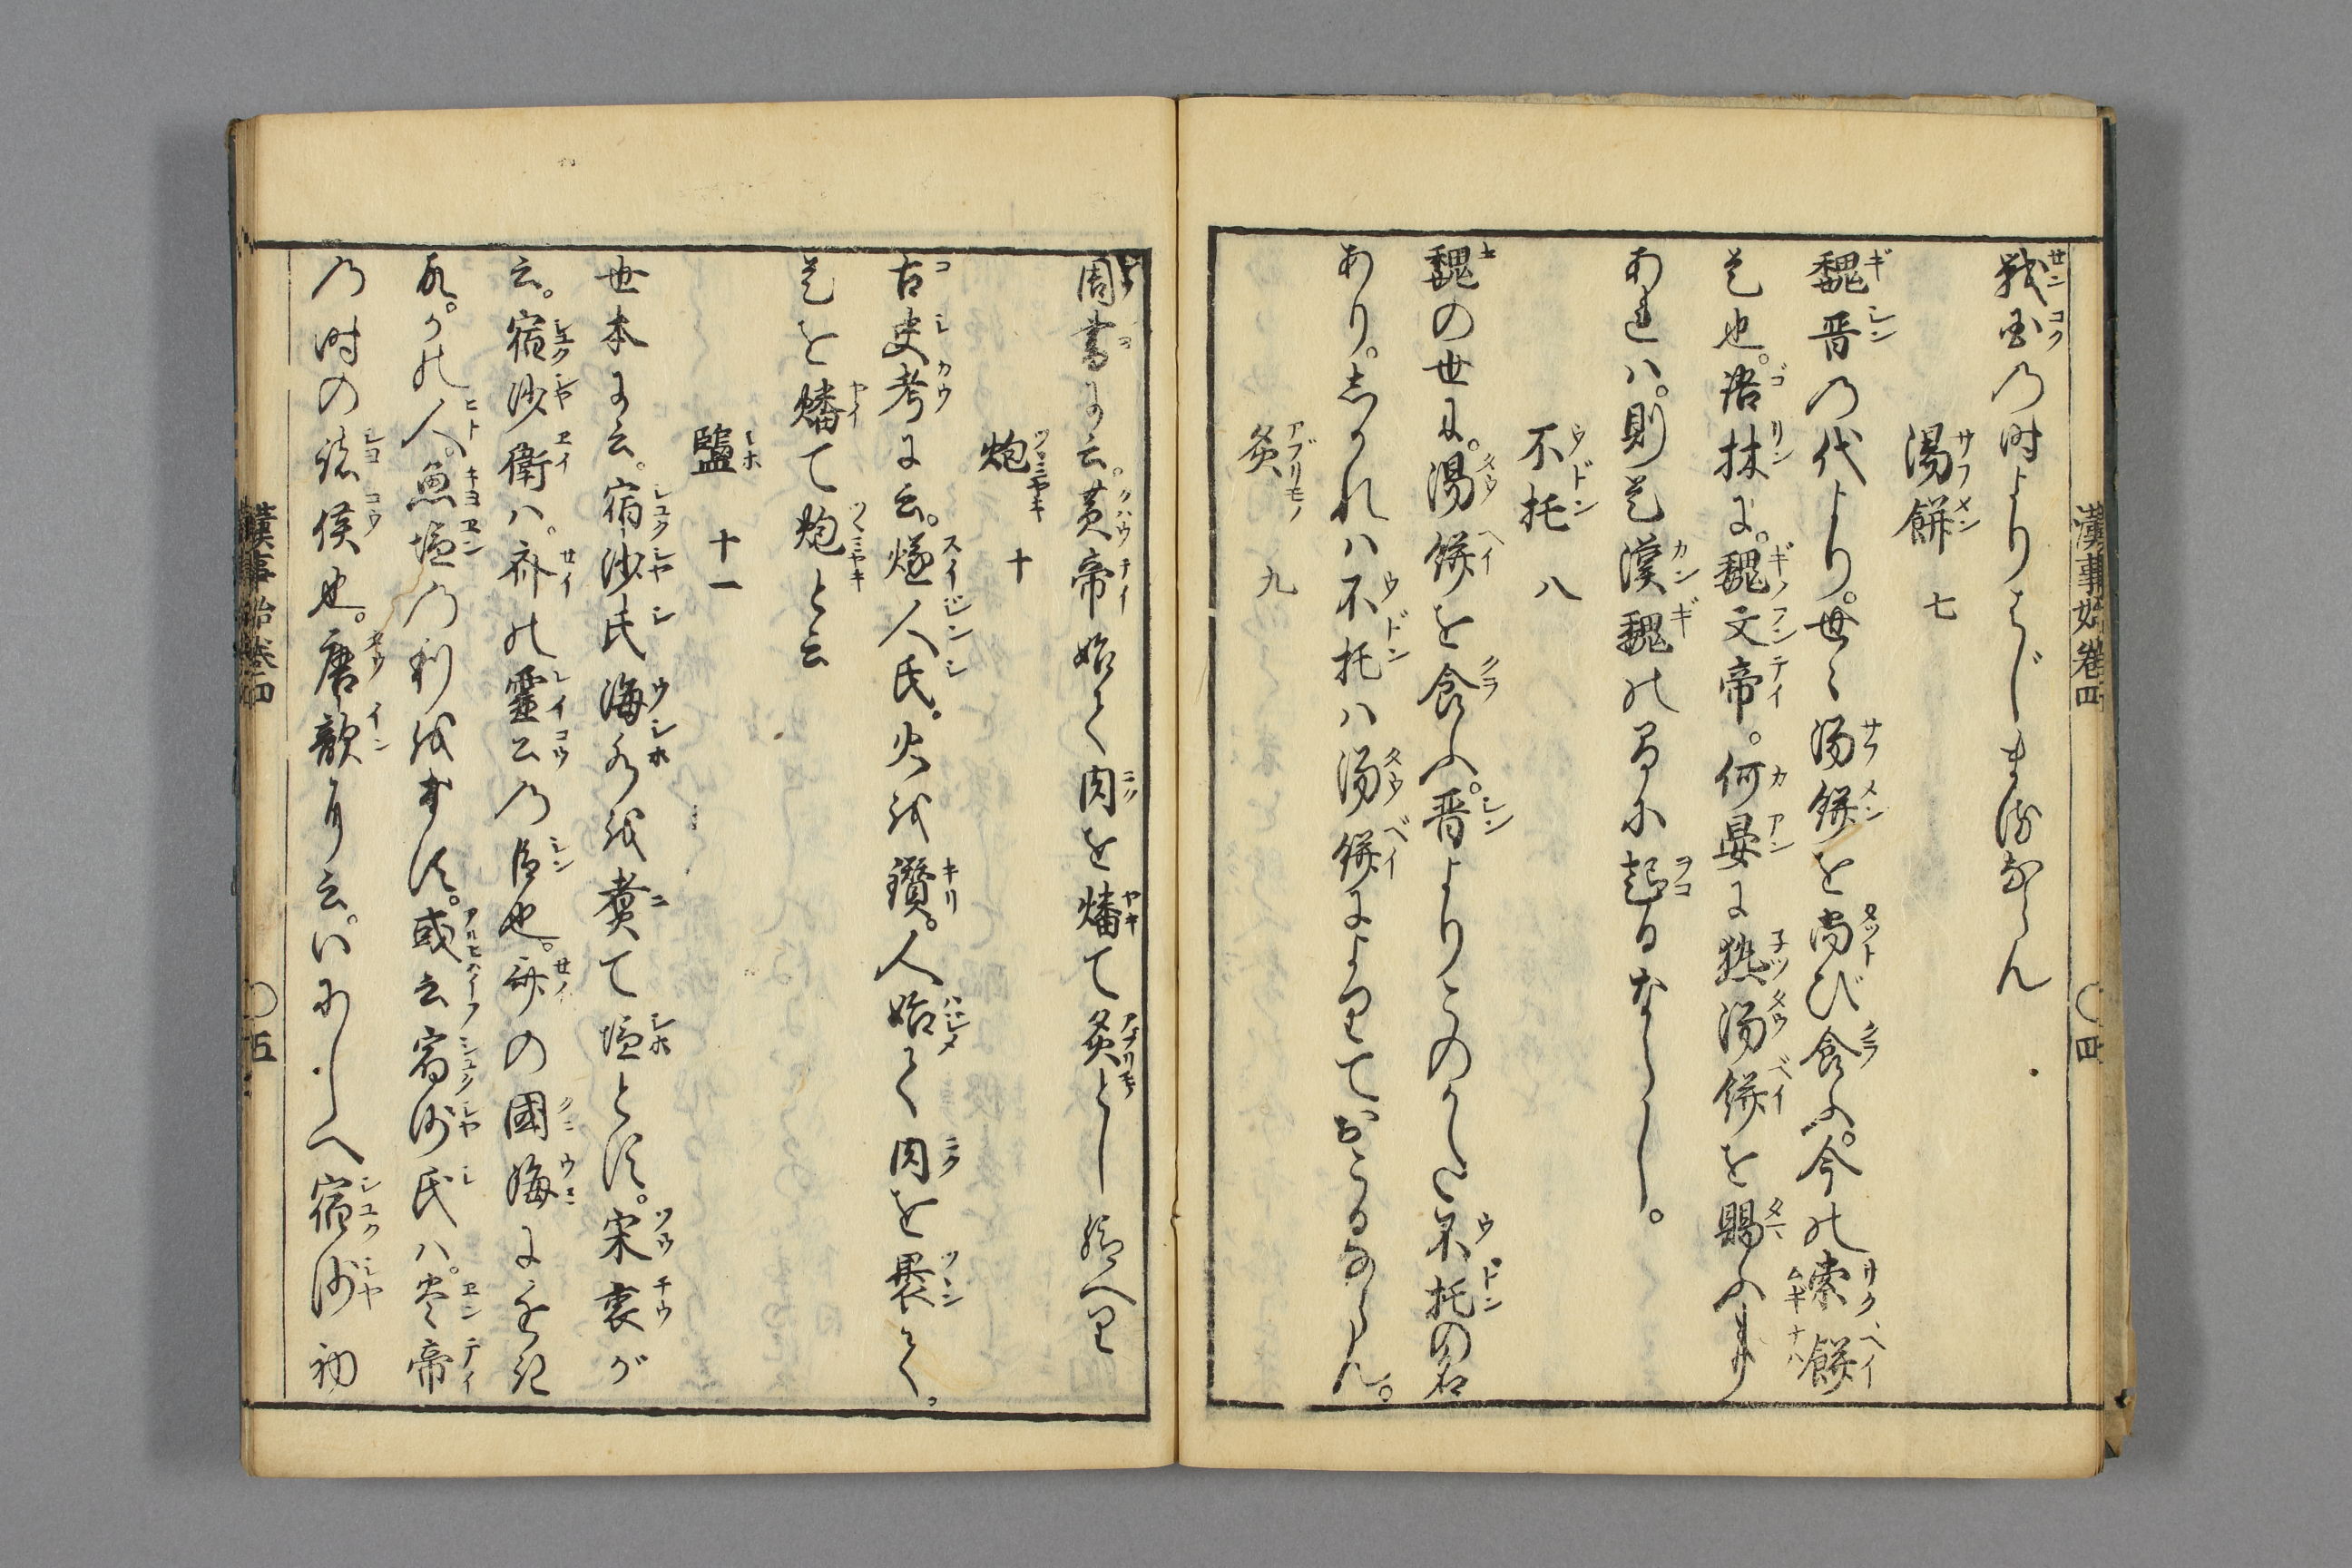 戦国の時よりはじまるならん
湯餅 七
魏晋の代より。世〻湯餅を尚び食ふ。今の索餅
是也。語林に。魏文帝。何晏に熱湯餅を賜ふ事
あれハ。則是漢魏の間に起るなるべし。
不托 八
魏の世に。湯餅を食ふ。晋よりこのかた不托の名
あり。しかれハ不托ハ湯餅によりておこるならん。
炙 九
漢事始巻四 〇四
周書に云。黄帝始て肉を燔て炙とし給へり
炮 十
古史考に云。燧人氏。火を鑽。人始て肉を褁て。
是を燔て炮と云
鹽 十一
世本に云。宿沙氏海水を煮て塩とす。宋衷が
云。宿沙衛ハ。齊の靈公の臣也。齊の國海にをき
故。かの人。魚塩の利をす。或云宿沙氏ハ。炎帝
の時の諸侯也。唐韻に云。いにしへ宿沙初
漢事始巻四 〇五